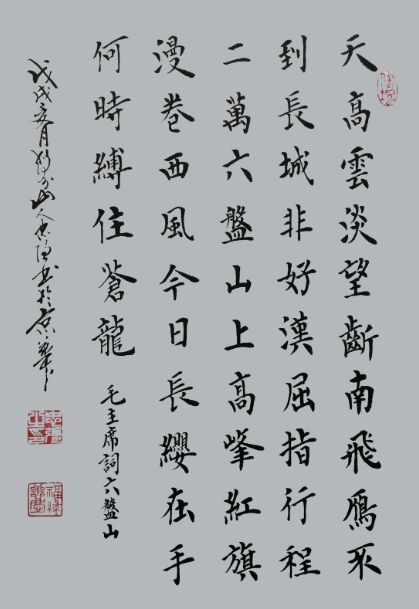 天高雲淡望斷南飛鴈不
到長城非好漢屈指行程
二萬六盤山上高峰紅旗
漫卷西風今日長纓在手
何時縛住蒼龍
毛主席詞六盤山
戊戌亥月山人书於京華